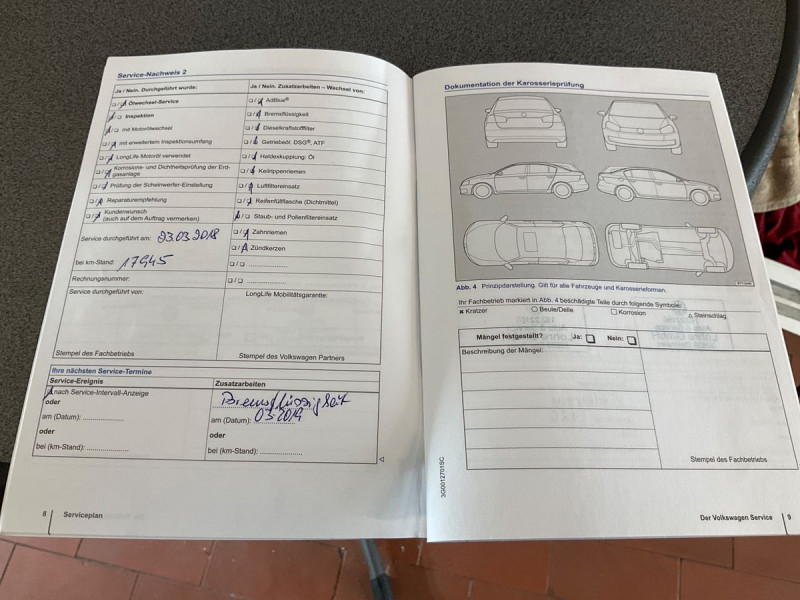 Service-Nachweis 2
Ja / Nein. Durchgeführt wurde:
❏ / ❏ Ölwechsel-Service
❏ / ❏ Inspektion
❏ / ❏ mit Motorölwechsel
❏ / ❏ mit erweitertem Inspektionsumfang
❏ / ❏ LongLife Motoröl verwendet
❏ / ❏ Korrosions- und Dichtheitsprüfung der Erd-
gasanlage
❏ / ❏ Prüfung der Scheinwerfer-Einstellung
❏ / ❏ Reparaturempfehlung
❏ / ❏ Kundenwunsch
(auch auf dem Auftrag vermerken)
Service durchgeführt am: 23.03.2018
bei km-Stand: 17945
Rechnungsnummer:
Service durchgeführt von:
Stempel des Fachbetriebs
Ja / Nein. Zusatzarbeiten – Wechsel von:
❏ / ❏ AdBlue®
❏ / ❏ Bremsflüssigkeit
❏ / ❏ Dieselkraftstofffilter
❏ / ❏ Getriebeöl, DSG®, ATF
❏ / ❏ Haldexkupplung: Öl
❏ / ❏ Keilrippenriemen
❏ / ❏ Luftfiltereinsatz
❏ / ❏ Reifenfüllflasche (Dichtmittel)
❏ / ❏ Staub- und Pollenfiltereinsatz
❏ / ❏ Zahnriemen
❏ / ❏ Zündkerzen
❏ / ❏ ....................
❏ / ❏ ....................
LongLife Mobilitätsgarantie:
Stempel des Volkswagen Partners
Ihre nächsten Service-Termine
Service-Ereignis
❏ nach Service-Intervall-Anzeige
oder
am (Datum): ..............
oder
bei (km-Stand): ..............
Zusatzarbeiten
Bremsflüssigkeit
am (Datum): 03.2019
oder
bei (km-Stand): ..............
8 Serviceplan
Dokumentation der Karosserieprüfung
Abb. 4 Prinzipdarstellung. Gilt für alle Fahrzeuge und Karosserieformen.
Ihr Fachbetrieb markiert in Abb. 4 beschädigte Teile durch folgende Symbole:
✖ Kratzer ○ Beule/Delle □ Korrosion △ Steinschlag
Mängel festgestellt? Ja: ❏ Nein: ❏
Beschreibung der Mängel:
Stempel des Fachbetriebs
3G0012701SC
Der Volkswagen Service 9